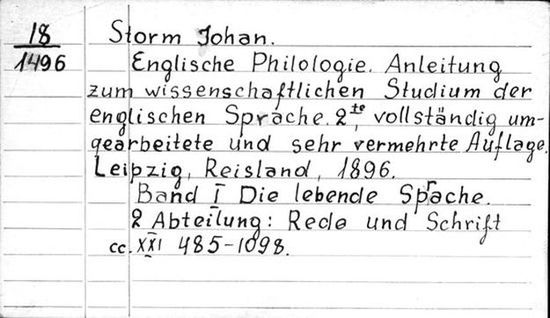 18
1496
Storm Johan.
Englische Philologie. Anleitung
zum wissenschaftlichen Studium der
englischen Sprache. 2te, vollständig um-
gearbeitete und sehr vermehrte Auflage.
Leipzig, Reisland, 1896.
Band I Die lebende Sprache.
2 Abteilung: Rede und Schrift
cc. XXI 485-1098.